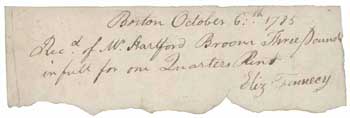 Boston October 6.th 1785
Rec.d of Mr. Hartford Broom Three Pounds
in full for one Quarters Rent
Eliz